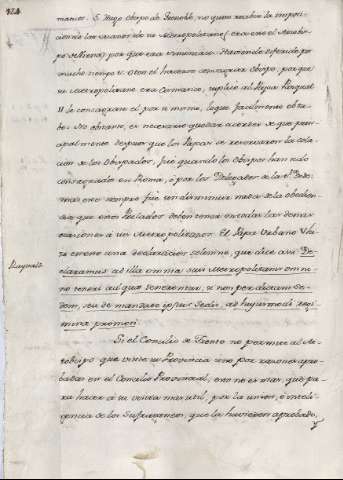 manos. S. Hugo Obispo de Grenoble, no quiso recibir la imposi-
cion de las manos de su Metropolitano (era este el Arzobis-
po de Viena) por que era simoniaco. Haviendo diferido por
mucho tiempo el hacerse consagrar Obispo, por que
su Metropolitano era Cismatico, suplicó al Papa Pasqual
II le consagrase el por si mismo, loque facilmente obtu-
bo. No obstante, es necesario quedar acordes de que prin-
cipalmente despues que los Papas se reservaron la cola-
cion de los Obispados, fue quando los Obispos han sido
consagrados en Roma, ó por los Delegados de la Sta Sede
mas esto siempre fue sin disminuir nada de la obedien-
cia que estos Prelados deben tener en todas las demas
ocasiones á su Metropolitano. El Papa Urbano V hi-
zo en esto una declaracion solemne, que dice asi: De-
Raynald.
claramus ad illa omnia suis Metropolitanis omni-
no teneri ad quae tenerentur, si non per dictam Se-
dem, seu de mandato ipsius Sedis, ad hujusmodi regi-
mina promoti.
Si el Concilio de Trento no permite al Ar-
zobispo que visite su Provincia sino por razones apro-
badas en el Concilio Provincial, esto no es mas, que pa-
ra hacer á su visita mas util, por la union, é inteli-
gencia de los Sufraganeos, que la huviesen aprobado,
y